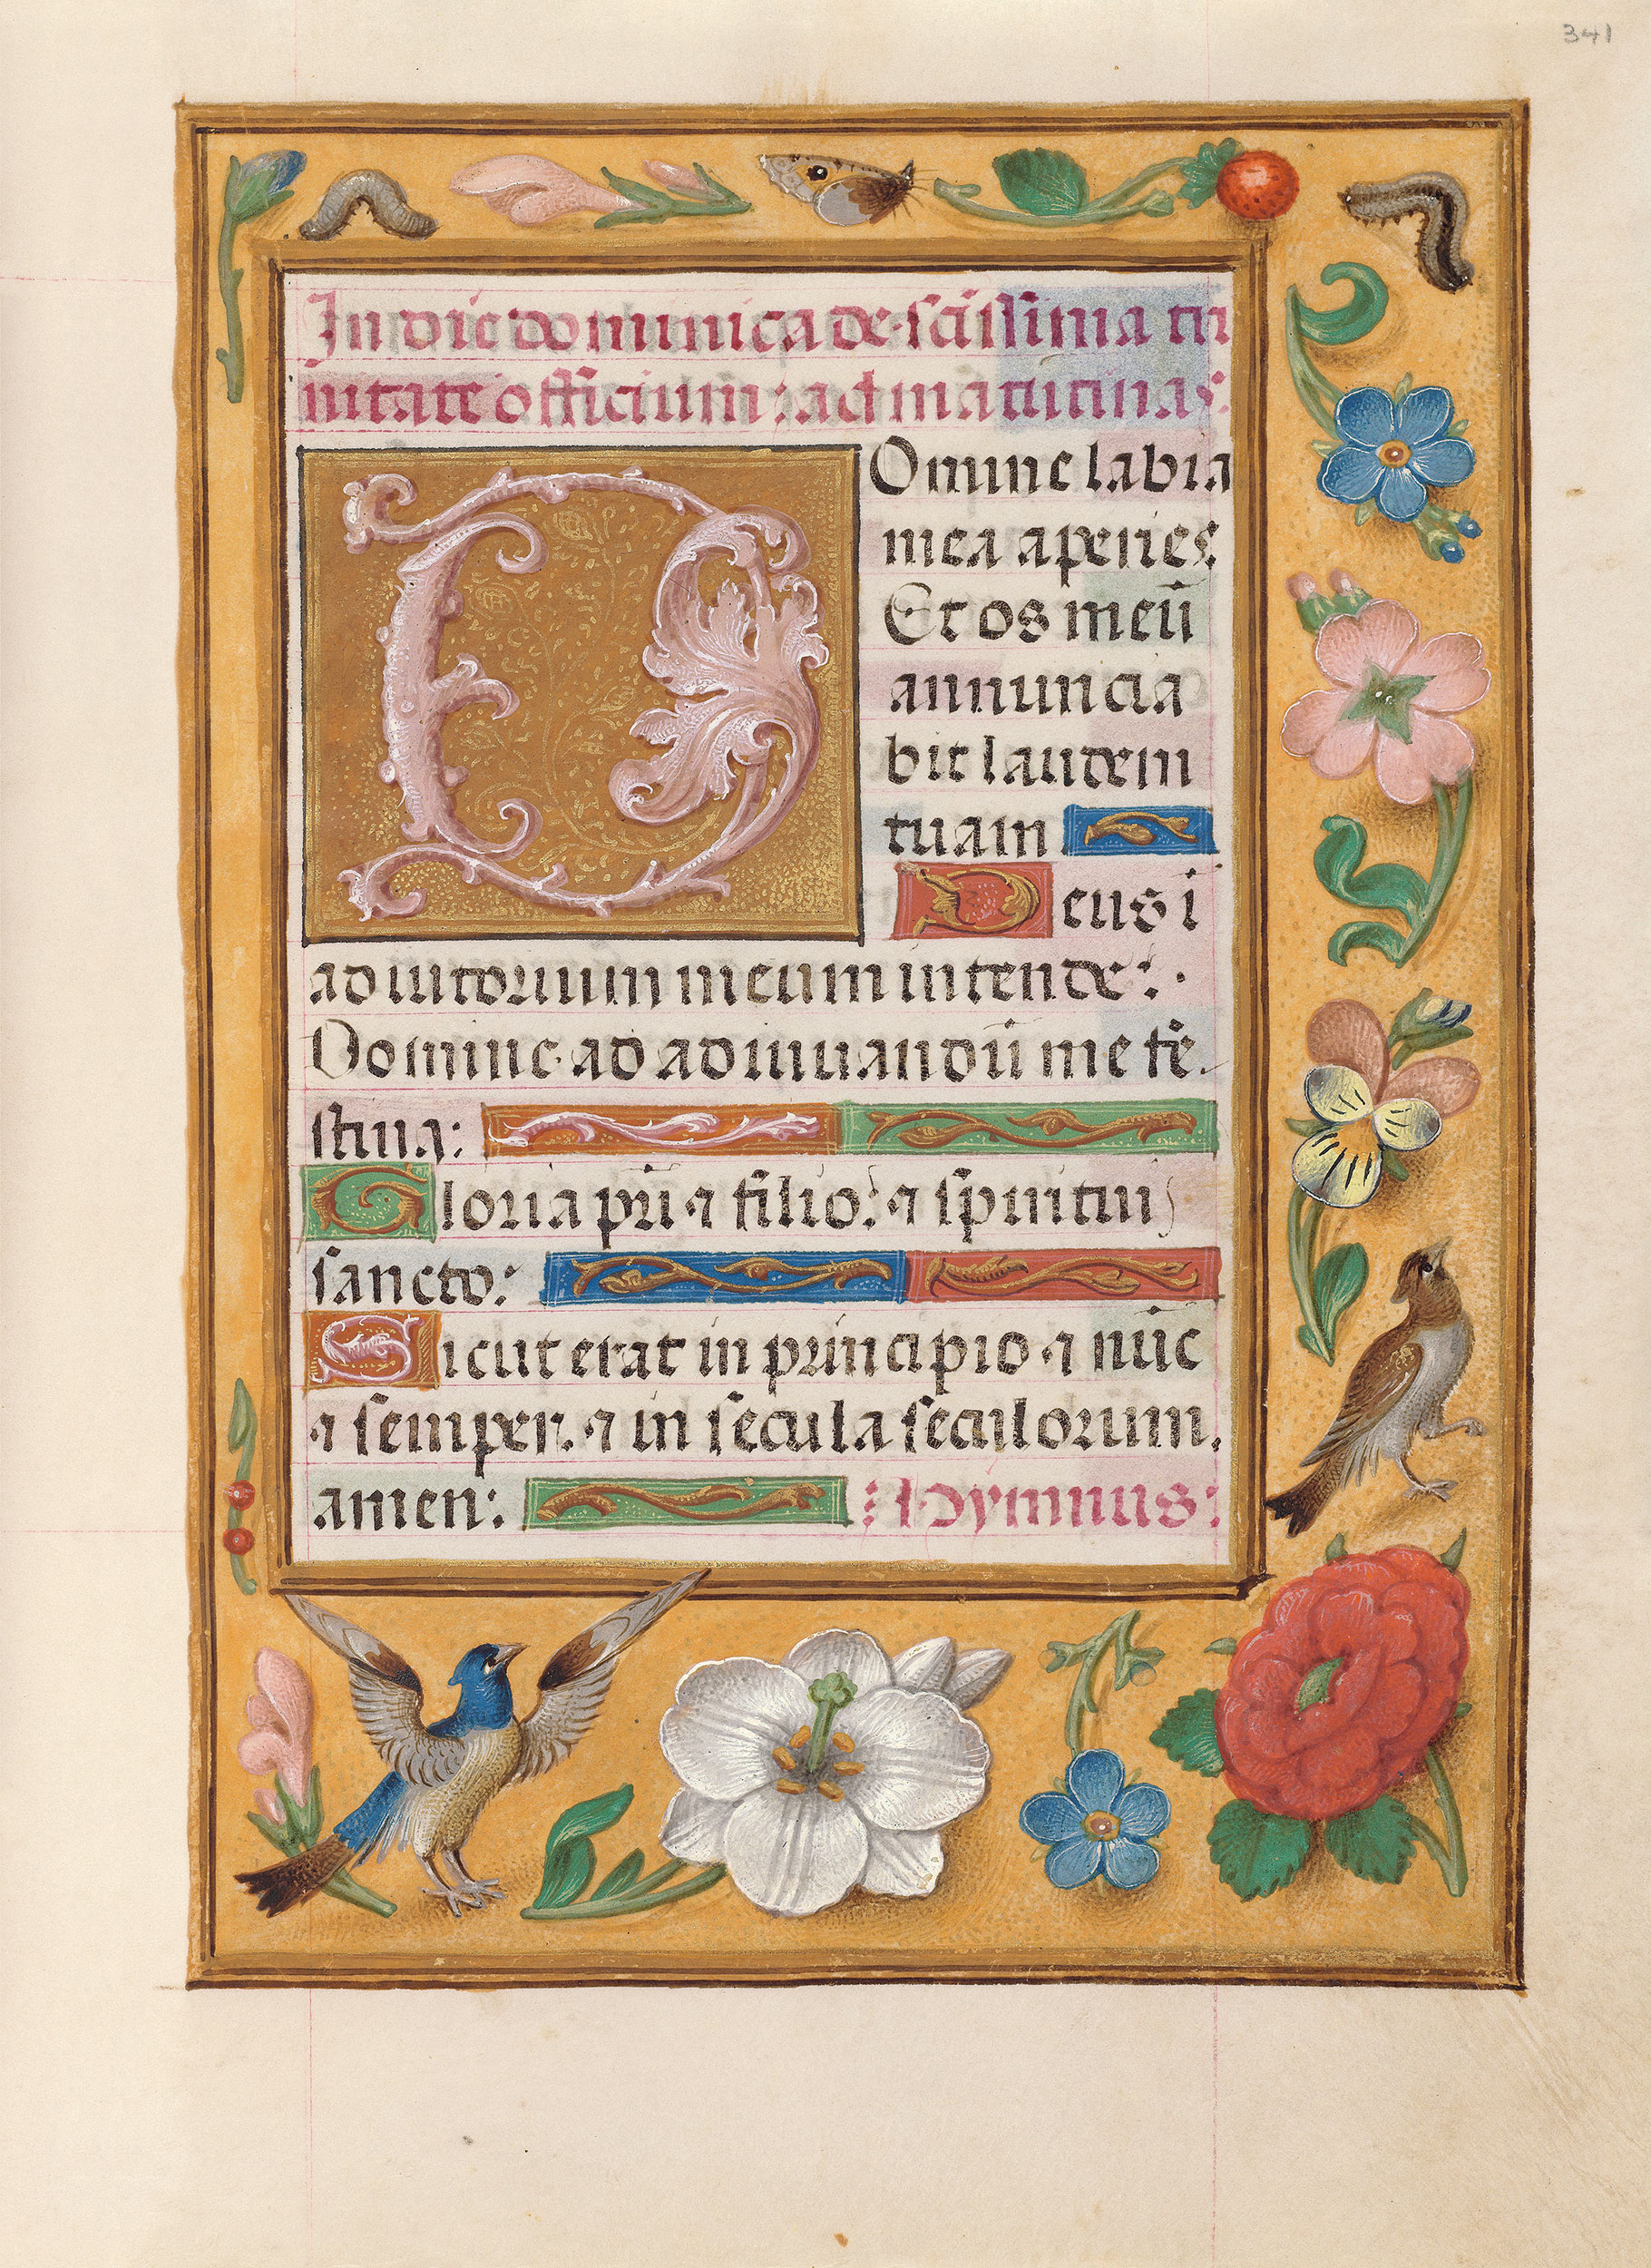 341
In die dominica de sc̄issima tri
nitate officium: ad matutinas:
Domine labia
mea aperies
Et os meū
annuncia
bit laudem
tuam
Deus i
adiutorium meum intende:.
Domine ad adiuuandū me fe
stina:
Gloria pr̄i ⁊ filio: ⁊ spiritui
sancto:
Sicut erat in principio ⁊ nūc
⁊ semper. ⁊ in secula seculorum.
amen: Hymnus: